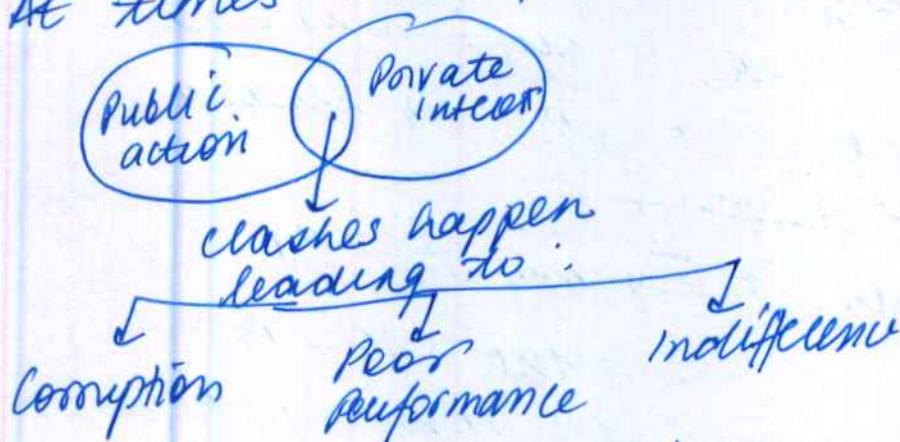 At times
Public
action
Private
Interest
clashes happen
leading to :
Corruption
Poor
performance
Indifference